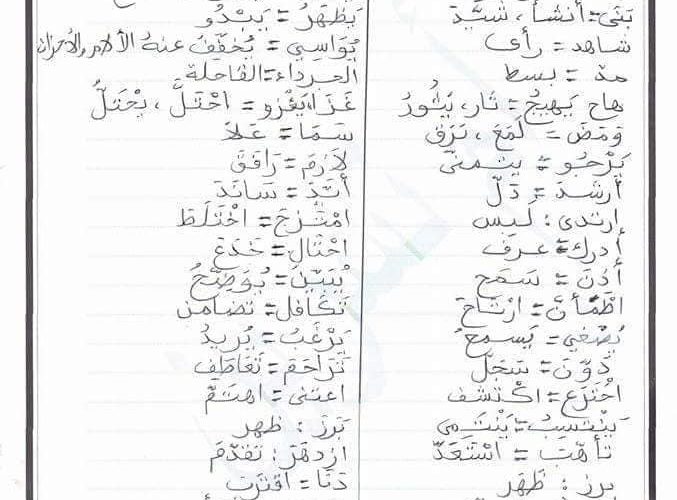 بَنَى = أنشأ، شَيَّدَ
شاهد = رأى
مدّ = بسط
هاج يَهِيجُ = ثار، يَثُورُ
وَمَضَ = لَمَعَ، بَرَقَ
يَرْجُو = يتمنّى
أرشدَ = دَلَّ
إرتدى: لَبِس
أدركَ = عرَفَ
أذِنَ = سَمَحَ
اطْمَأَنَّ = ارْتَاحَ
يُصْغِي = يَسمعُ
دَوَّنَ = سَجَّلَ
اخْتَرَعَ = اكْتشف
يَنْتَسِبُ = يَنْتَمِي
تَأَهَّبَ = اسْتَعَدَّ
برز: ظَهَرَ
يَظْهَرُ = يَبْدُو
يُوَاسِي = يُخَفِّفُ عنهُ الألام والأحزان
الجَرْدَاء = القَاحلة
غَزَا، يَغْزو = احْتَلَّ، يَحْتَلُّ
سَمَا = عَلَا
لَازَمَ = رَافَقَ
أَيَّدَ = سَانَدَ
امْتَزَجَ = اخْتَلَطَ
احْتَالَ = خَدَعَ
يُبَيِّنُ = يُوَضِّحُ
تَكَافل = تضامن
يَرْغَبُ = يُرِيدُ
تَرَاحَمَ = تَعَاطَفَ
اعتنى = اهتَمَّ
بَرَزَ: ظهر
ازدهَرَ: تَقَدَّمَ
دَنَا = اقْتَرَبَ